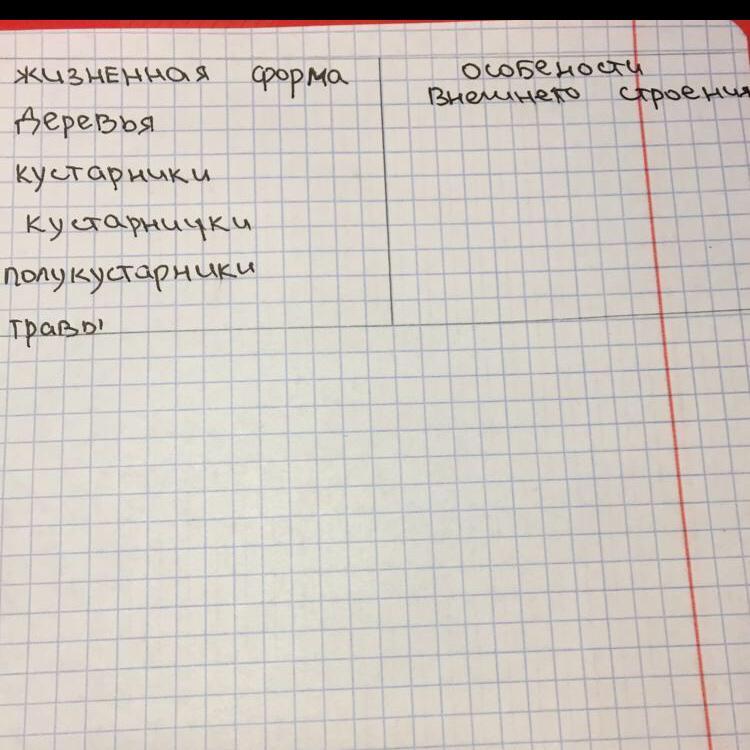 жизненная форма
особености
внешнего строения
деревья
кустарники
кустарнички
полукустарники
травы